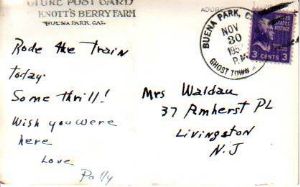 CTURE POST CARD
KNOTT'S BERRY FARM
BUENA PARK, CAL.
Rode the Train
today.
Some thrill!
Wish you were
here
Love
Polly
ADDRESS
BUENA PARK, C
NOV
30
195
P.M.
GHOST TOWN
3 CENTS 3
Mrs Waldau
37 Amherst PL
Livingston
N.J